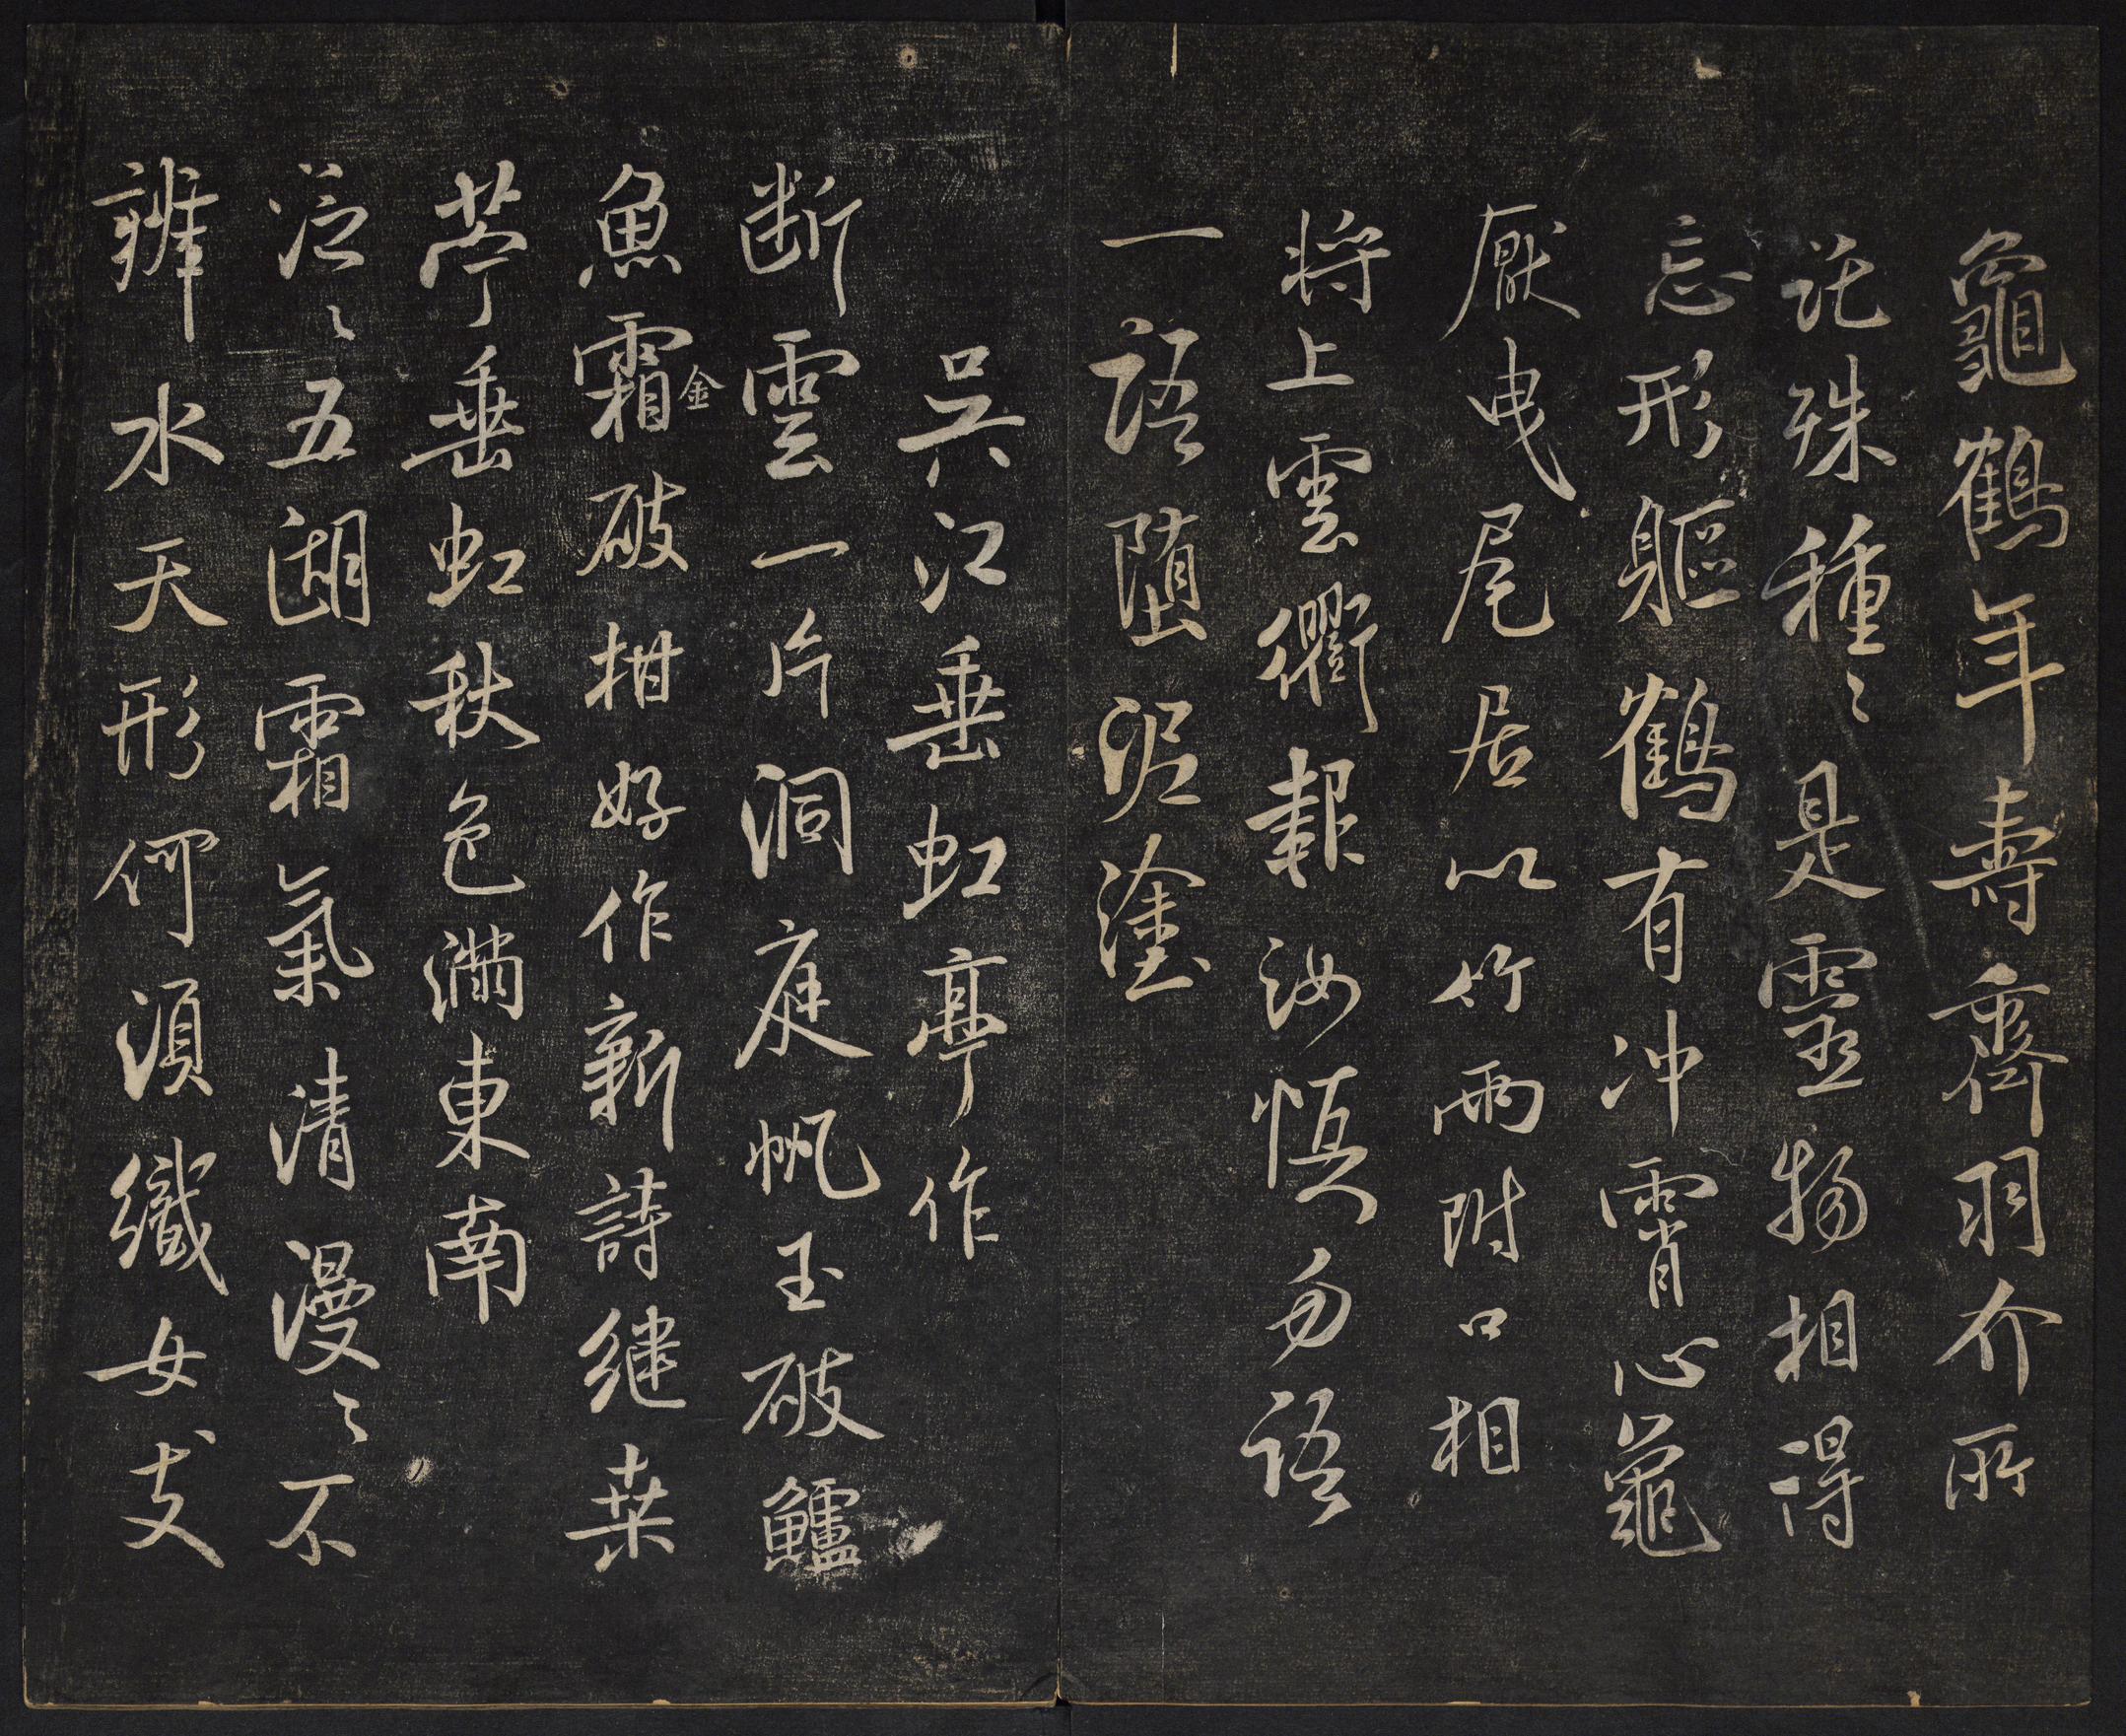 龜鶴年壽齊羽介所
託殊種〻是靈物相得
忘形軀鶴有冲霄心龜
厭曳尾居以竹兩附口相
将上雲衢報汝慎勿語
一語堕泥塗
吳江垂虹亭作
断雲一片洞庭帆玉破鱸
魚霜金破柑好作新詩継桑
苧垂虹秋色滿東南
泛〻五湖霜氣清漫〻不
辨水天形何須織女支